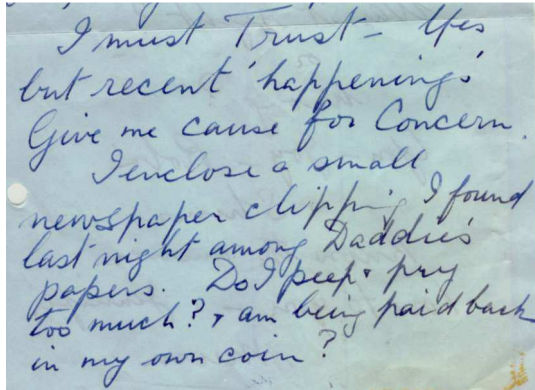 I must Trust - Yes
but recent 'happenings'
Give me cause for Concern.
I enclose a small
newspaper clipping I found
last night among Daddies
papers. Do I peep & pry
too much? & am being paid back
in my own coin?